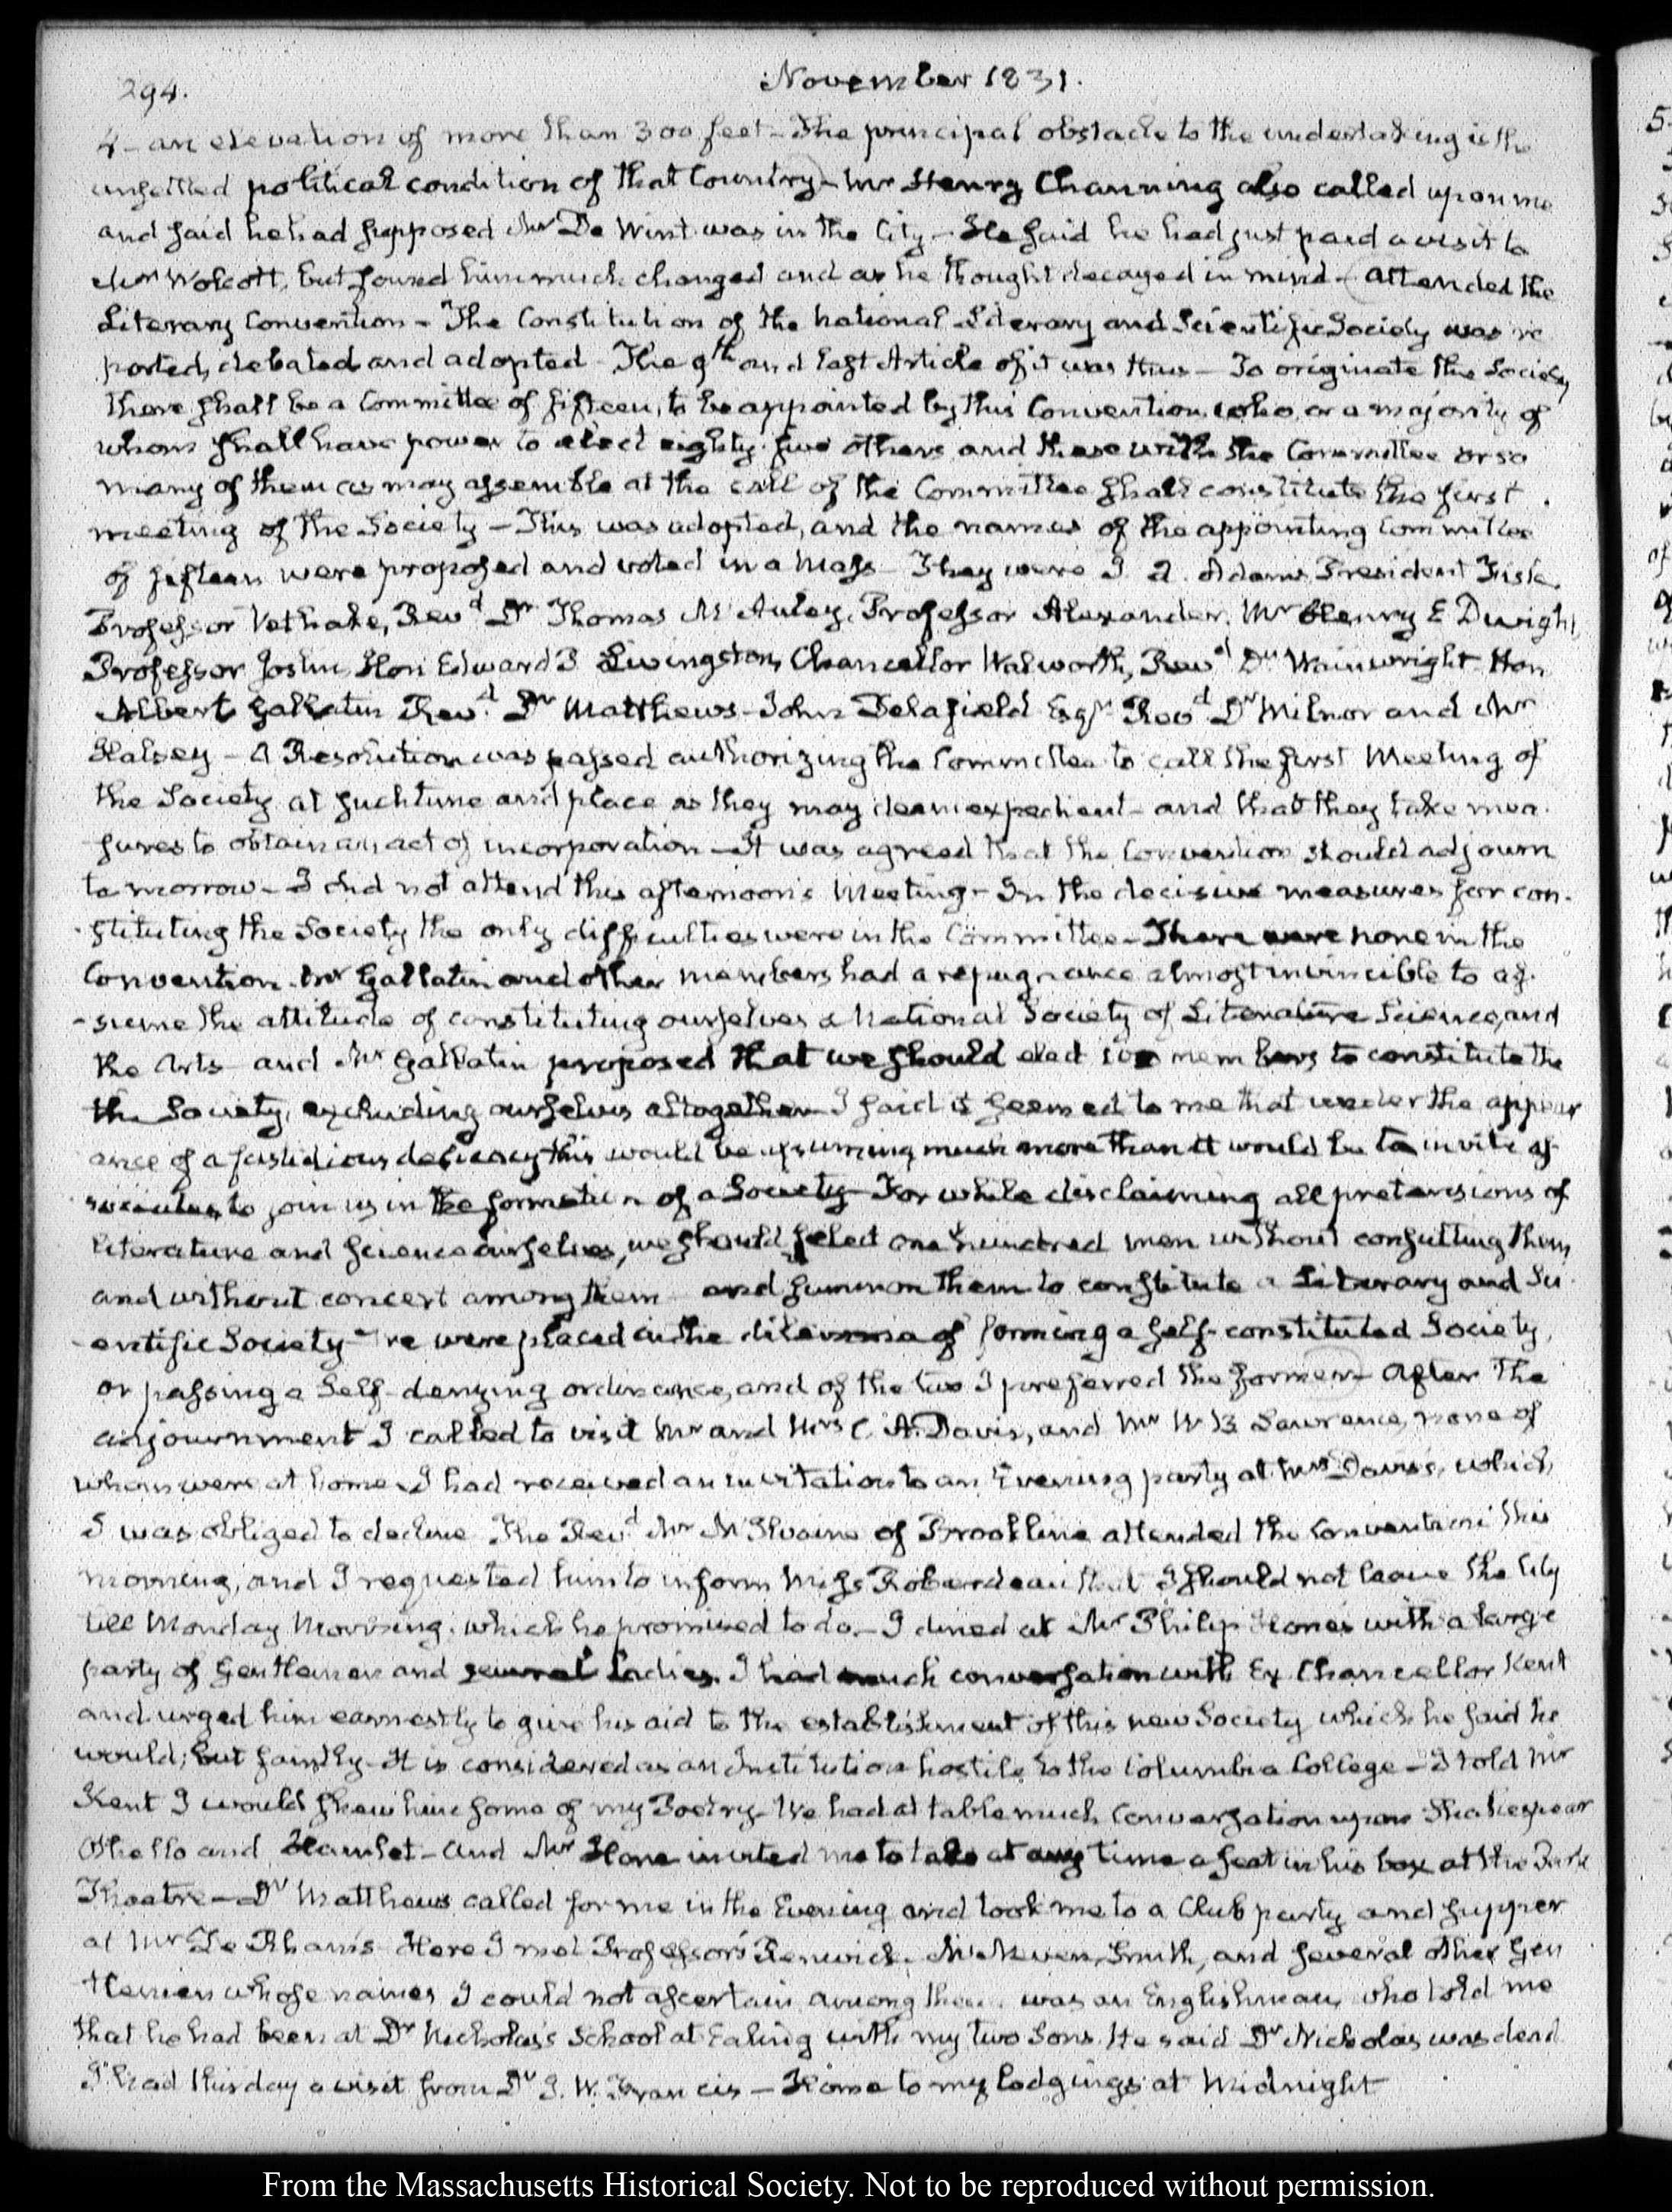 294.
November 1831.
4 - an elevation of more than 300 feet - The principal obstacle to the undertaking is the
unsettled political condition of that Country - Mr Henry Channing also called upon me
and said he had supposed Mr De Wint was in the City - He said he had just paid a visit to
Mr Wolcott, but found him much changed and as he thought decayed in mind - Attended the
Literary Convention - The Constitution of the National Literary and Scientific Society was re
ported, debated and adopted - The 9th and last Article of it was thus - To originate the Society
there shall be a Committee of fifteen, to be appointed by this Convention, who, or a majority of
whom shall have power to elect eighty-five others and these with the Committee or so
many of them as may assemble at the call of the Committee shall constitute the first
meeting of the Society - This was adopted, and the names of the appointing Committee
of fifteen were proposed and voted in a Mass - They were J. Q. Adams, President Fisk,
Professor Vethake, Revd Dr Thomas Mc Auley, Professor Alexander, Mr Henry E Dwight,
Professor Joslin, Hon Edward Livingston, Chancellor Walworth, Revd Dr Wainwright Hon
Albert Gallatin Revd Dr Matthews - John Delafield Esqr Revd Dr Milnor and Mr
Halsey - A Resolution was passed authorizing the Committee to call the first Meeting of
the Society at such time and place as they may deem expedient - and that they take mea-
sures to obtain an act of incorporation - It was agreed that the Convention should adjourn
to morrow - I did not attend this afternoon's Meeting - In the decisive measures for con-
-stituting the Society the only difficulties were in the Committee - There were none in the
Convention. Mr Gallatin and other members had a repugnance almost invincible to as-
-sume the attitude of constituting ourselves a National Society of Literature Science, and
the Arts - and Mr Gallatin proposed that we should elect 100 members to constitute the
the Society, excluding ourselves altogether - I said it seemed to me that under the appear
ance of a fastidious delicacy this would be assuming much more than it would be to invite as-
sociates to join us in the formation of a Society - For while disclaiming all pretensions of
literature and science ourselves, we should select one hundred men without consulting them,
and without concert among them - and summon them to constitute a Literary and Sci
-entific Society - We were placed in the dilemma of forming a self-constituted Society,
or passing a Self-denying ordinance, and of the two I preferred the former - After the
adjournment I called to visit Mr and Mrs C. A. Davis, and Mr W B Lawrence, none of
whom were at home - I had received an invitation to an Evening party at Mrs Davis's, which,
I was obliged to decline The Revd Mr McIlvaine of Brookline attended the Convention this
morning, and I requested him to inform Miss Roberdeau that I should not leave the City
till Monday Morning, which he promised to do. - I dined at Mr Philip Hone's with a large
party of Gentlemen and several Ladies. I had much conversation with Ex Chancellor Kent
and urged him earnestly to give his aid to the establishment of this new Society which he said he
would; but faintly - It is considered as an Institution hostile to the Columbia College - I told Mr
Kent I would shew him some of my Poetry - We had at table much Conversation upon Shakespear
Othello and Hamlet - And Mr Hone invited me to take at any time a seat in his box at the Park
Theatre - Dr Matthews called for me in the Evening and took me to a Club party and supper
at Mr De Rham's - Here I met Professors Renwick, McNeven, Smith, and several other Gen
tlemen whose names I could not ascertain, among them was an Englishman, who told me
that he had been at Dr Nicholas's School at Ealing with my two Sons. He said Dr Nicholas was dead
I had this day a visit from Dr J. W. Francis - Home to my lodgings at Midnight
5
From the Massachusetts Historical Society. Not to be reproduced without permission.